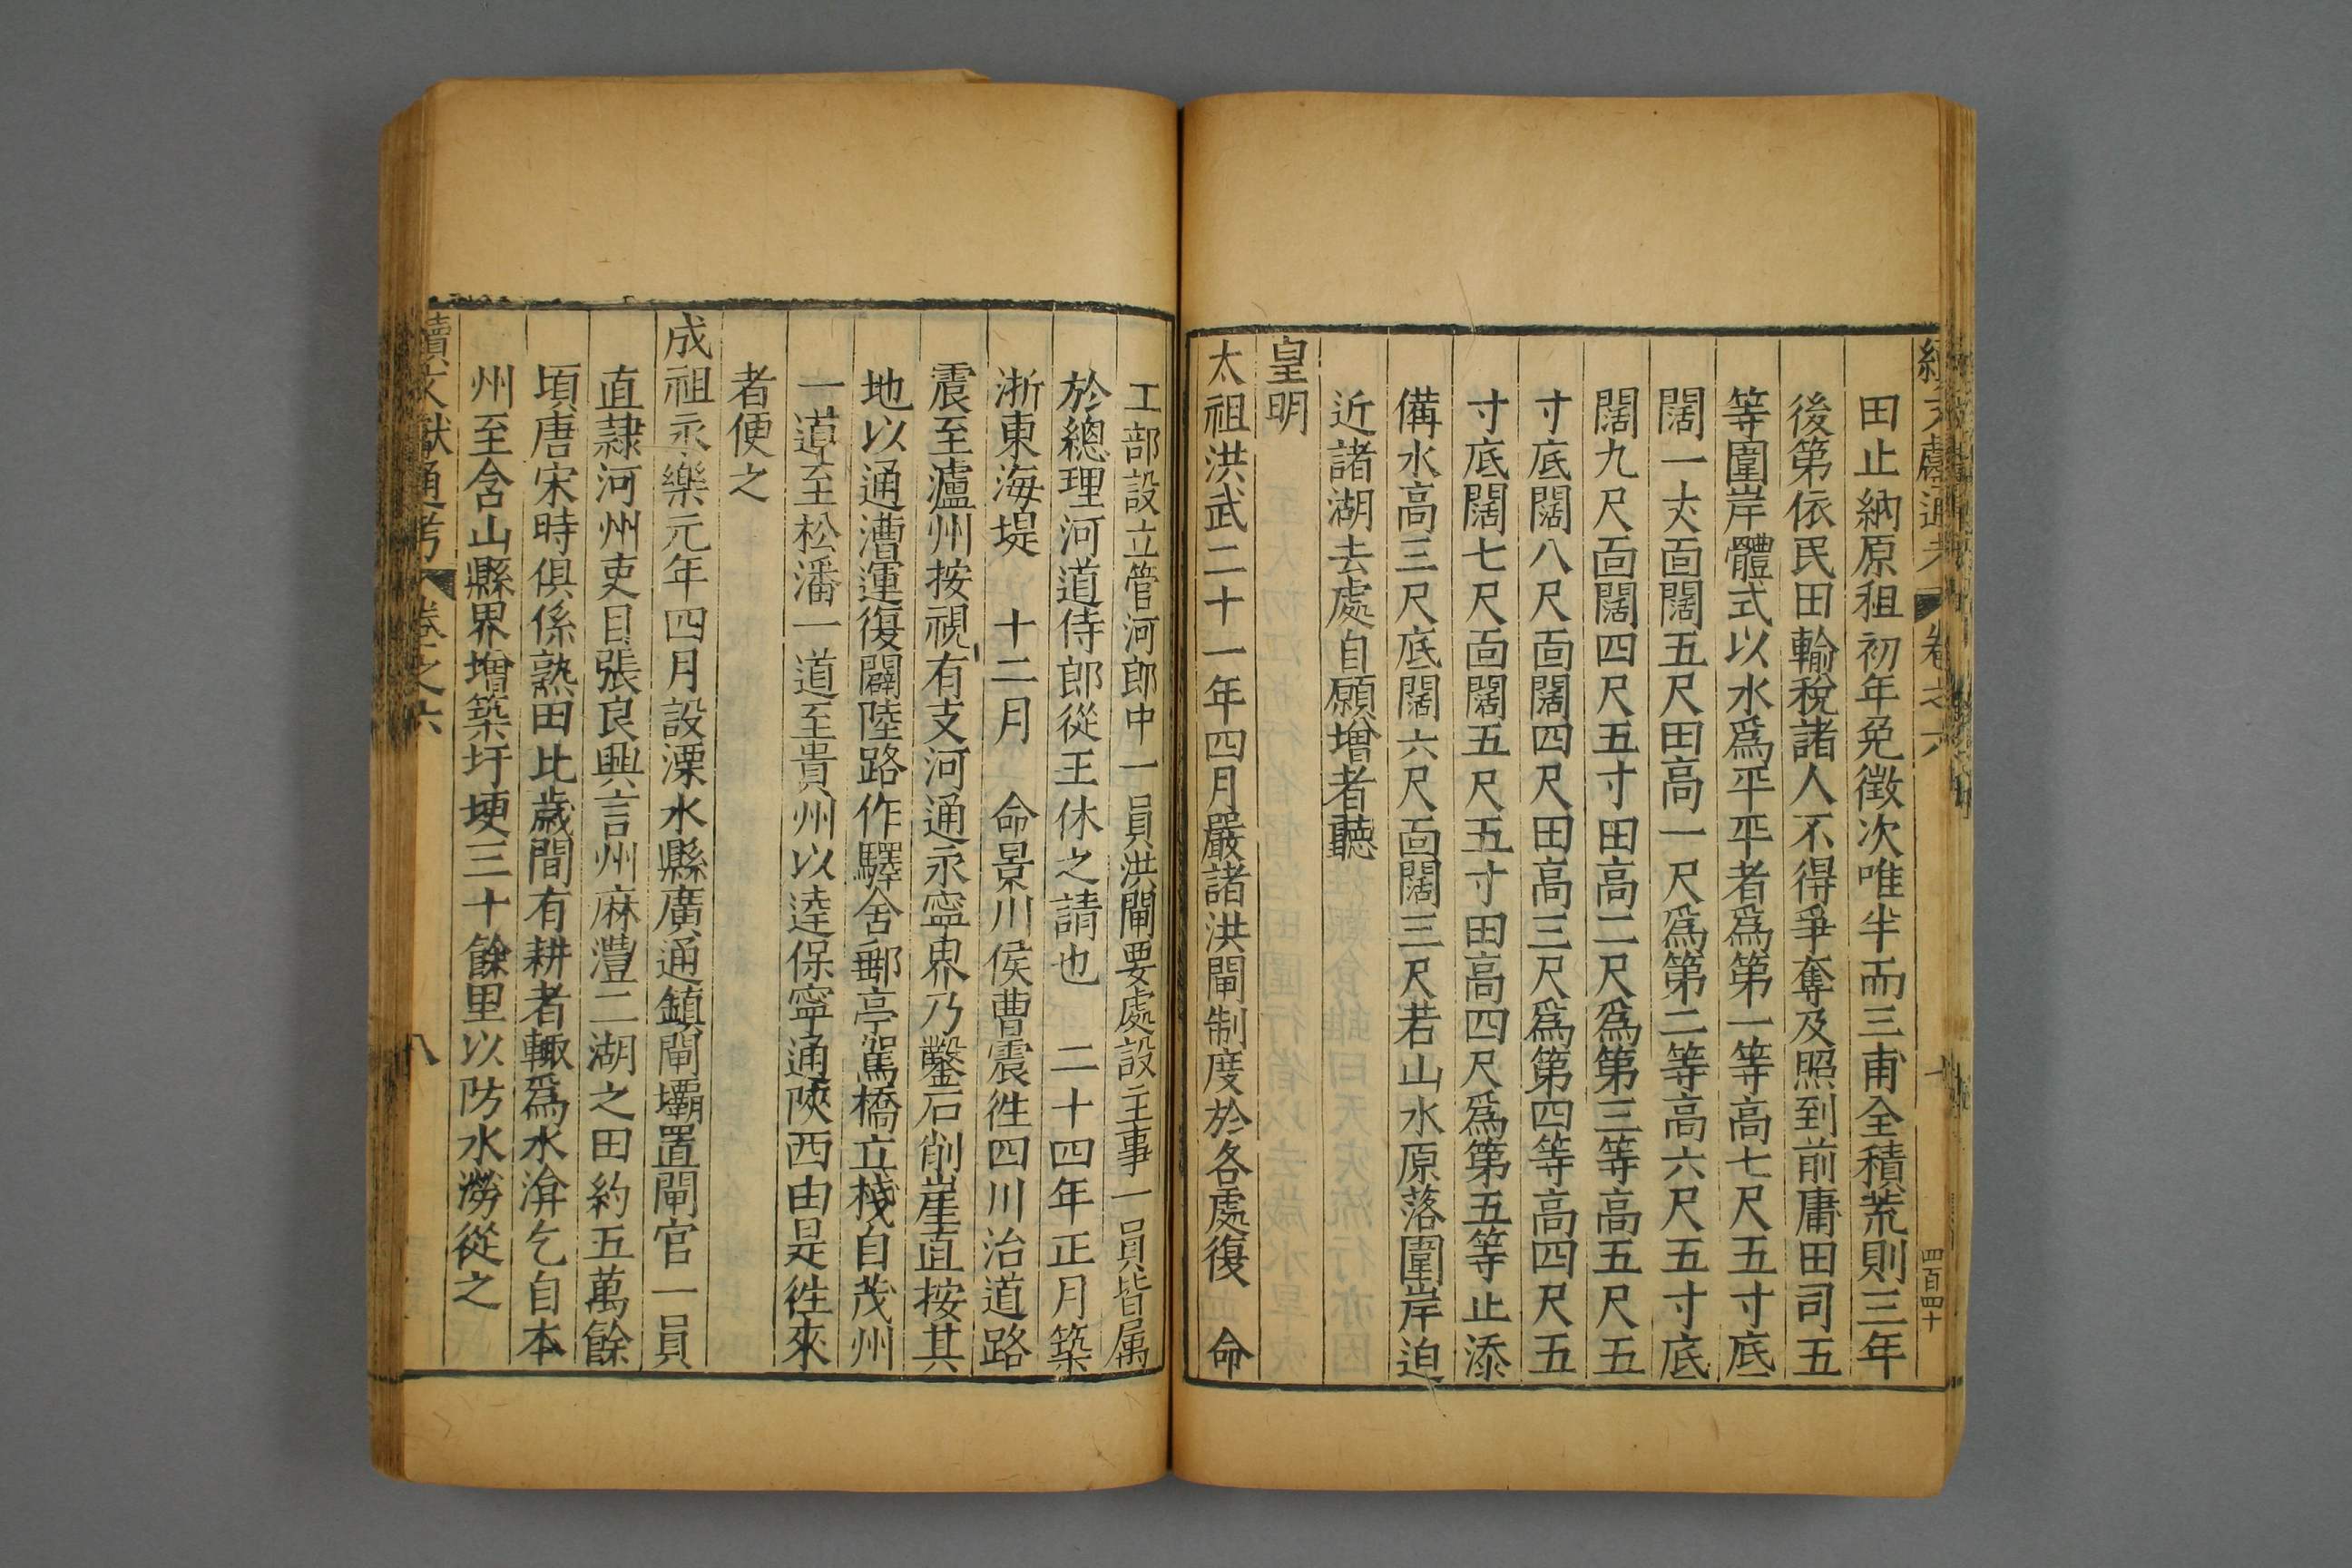 續文獻通考 卷之六
四百四十
田止納原租初年免徵次唯半而三甫全積荒則三年
後第依民田輸稅諸人不得爭奪及照到前庸田司五
等圍岸體式以水爲平平者爲第一等高七尺五寸底
闊一丈面闊五尺田高一尺爲第二等高六尺五寸底
闊九尺面闊四尺五寸田高二尺爲第三等高五尺五
寸底闊八尺面闊四尺田高三尺爲第四等高四尺五
寸底闊七尺面闊五尺五寸田高四尺爲第五等止添
備水高三尺底闊六尺面闊三尺若山水原落圍岸迫
近諸湖去處自願增者聽
皇明
太祖洪武二十一年四月嚴諸洪閘制度於各處復 命
工部設立管河郎中一員洪閘要處設主事一員皆属
於總理河道侍郎從王休之請也 二十四年正月築
浙東海堤 十二月 命景川侯曹震徃四川治道路
震至瀘州按視有支河通永寧界乃鑿石削崖直按其
地以通漕運復闢陸路作驛舍郵亭駕橋立棧自茂州
一道至松潘一道至貴州以逹保寧通陝西由是徃來
者便之
成祖永樂元年四月設溧水縣廣通鎮閘壩置閘官一員
直隷河州吏目張良興言州麻灃二湖之田約五萬餘
頃唐宋時俱係熟田比歲間有耕者輙爲水渰乞自本
州至含山縣界增築圩埂三十餘里以防水澇從之
續文獻通考 卷之六 八